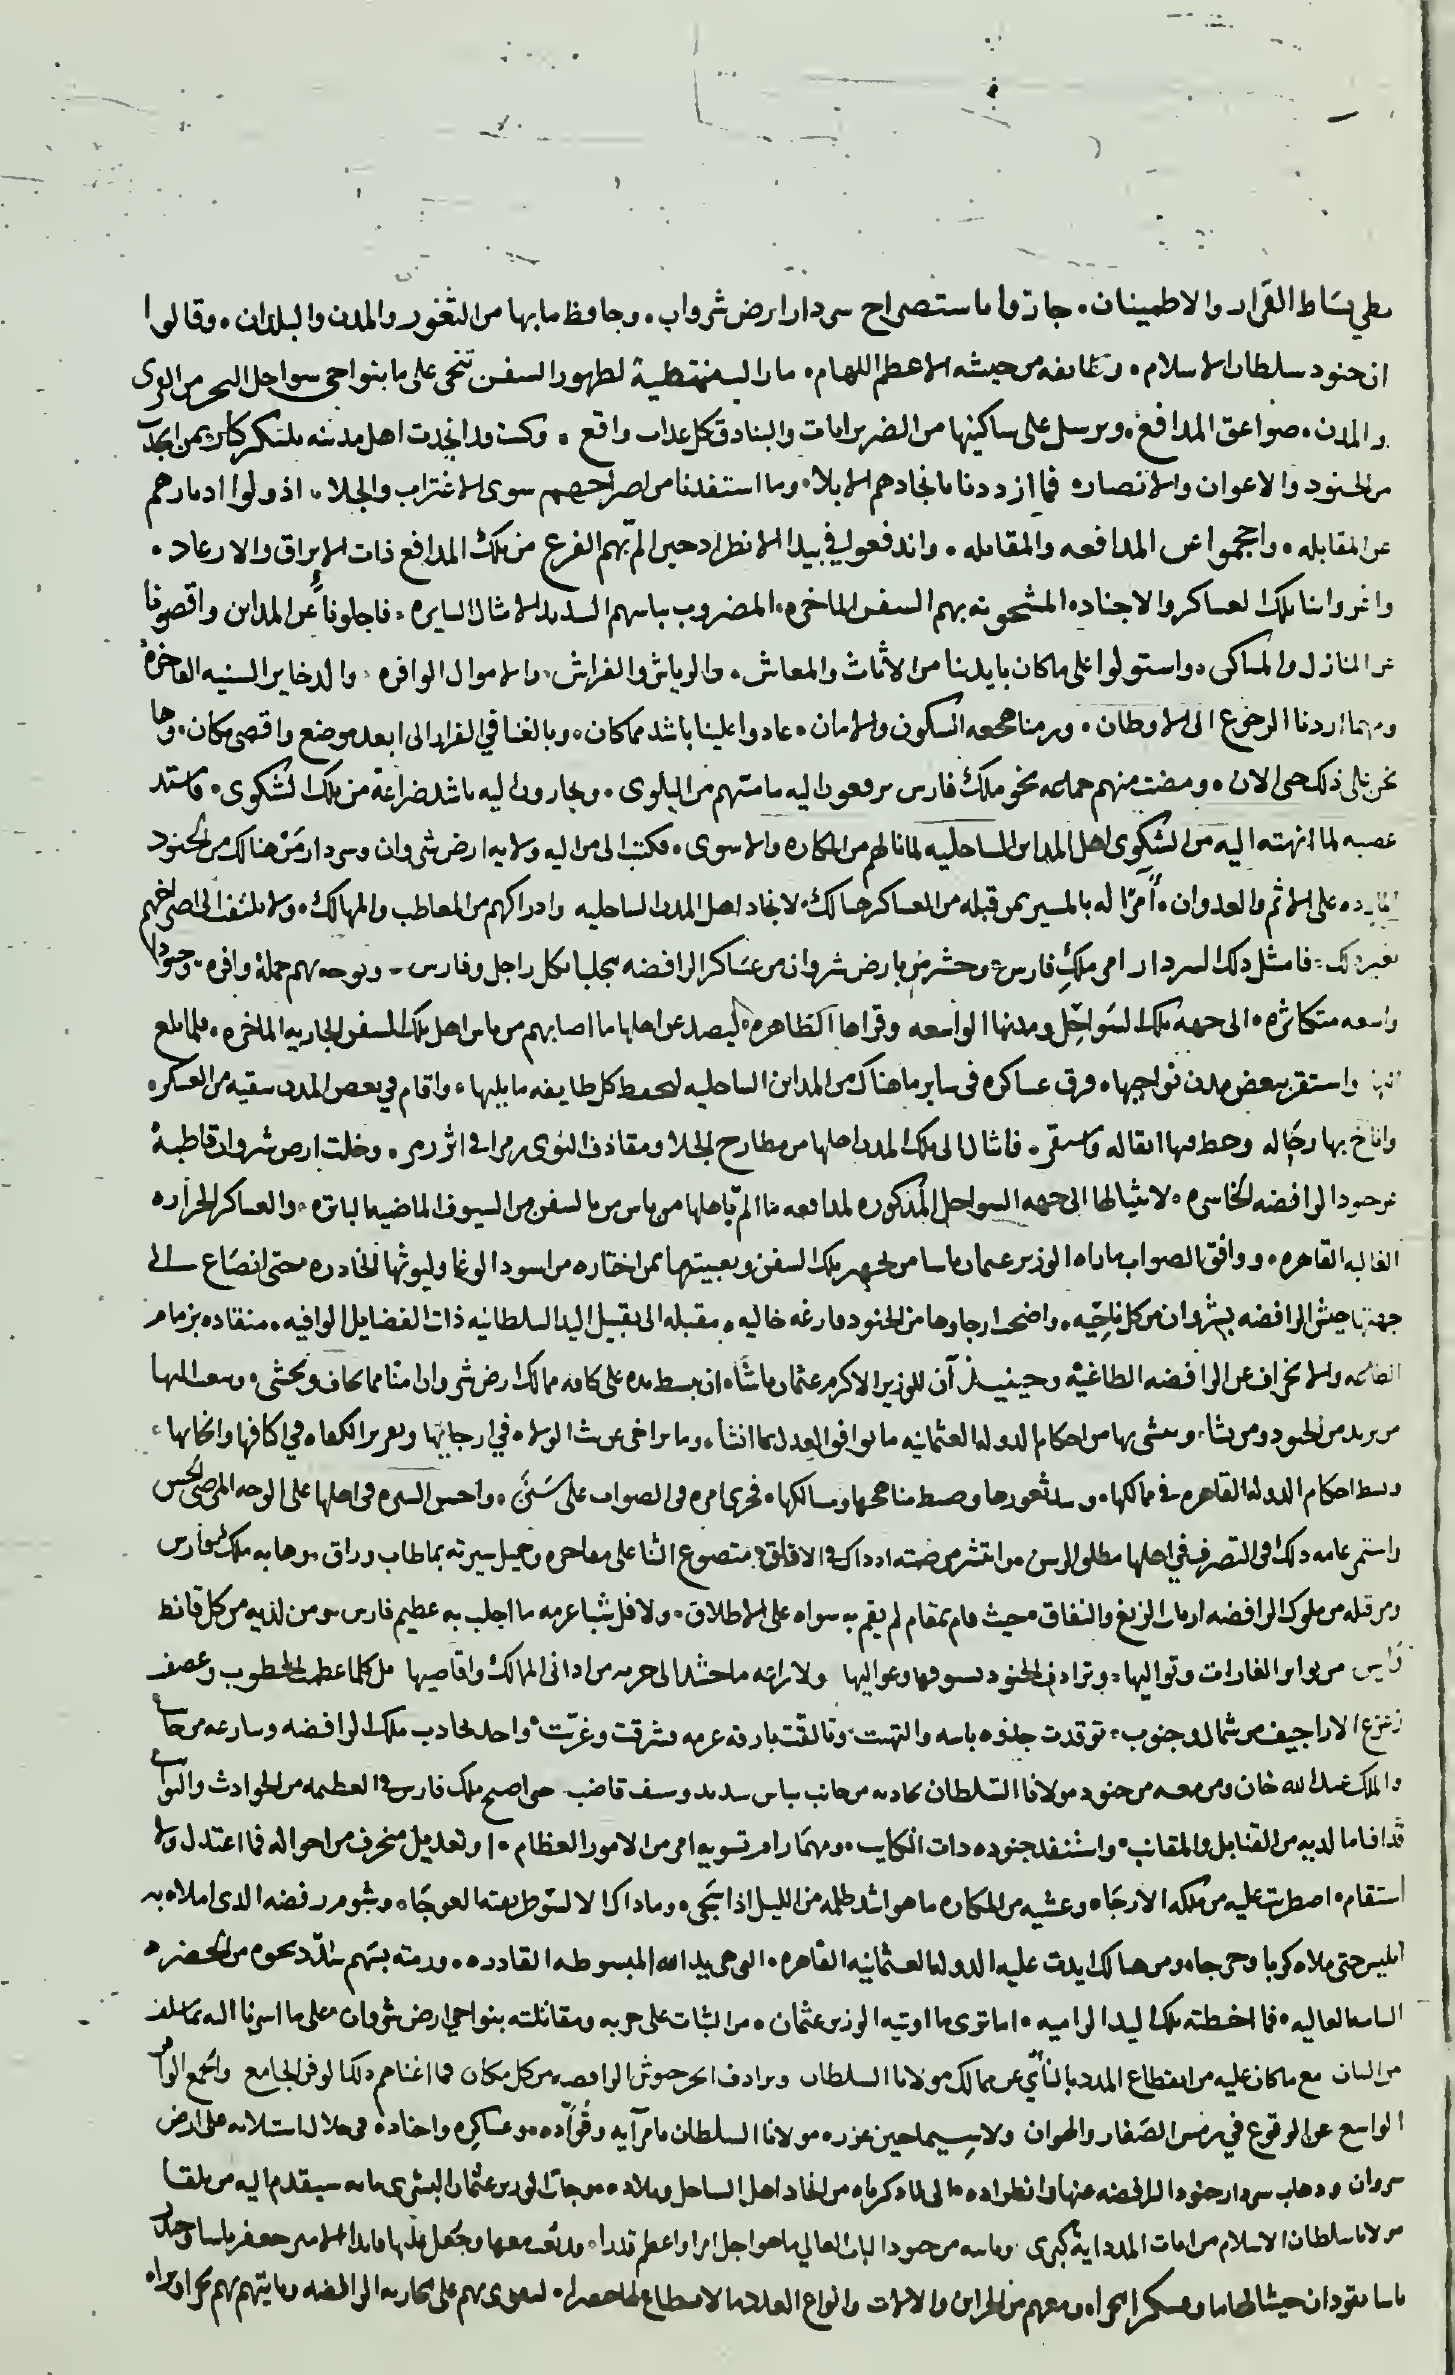 بساط القرار والاطمينان ٠ جازوا باستصراخ سردار ارض شروان ٠ وحافظ مابها من الثغور والمدن والبلدان ٠ وقالوا
ان جنود سلطان الاسلام ٠ وطائفه من جيشه الاعظم اللهام ٠ مازالت ممتطية لظهور السفن تنحى على ما بنواحى سواحل البحر من القرى
والمدن ٠ صواعق المدافع ٠ ويرسل على ساكنيها من الضربزانات والبنادق كل عذاب واقع ٠ وكنت قد انجدت اهل مدينه
من الجنود والاعوان والانصاره فما ازددنا بانجادهم الا بلا ٠ وما استفدنا من اصراخهم سوى الاغتراب والجلا ٠ اذ ولوا ادبارهم
عن المقابله ٠ واحجموا عن المدافعه والمقاتله ٠ واندفعوا في بيدا الانطراد حين المّ بهم الفزع من تلك المدافع ذات الابراق والارعاد ٠
واغروا بنا تلك العساكر والاجناد ٠ المشحونه بهم السفن الماخره ٠ المضروب بباسهم الشديد الامثال السايره ٠ فاجلونا عن المداين واقصونا
عن المنازل والمساكن ٠ واستولوا على ماكان بايدينا من الاثاث والمعاش ٠ والرياش والفراش ٠ والاموال الوافره ٠ والدخاير السنيه الفاخره
ومهما اردنا الرجوع الى الاوطان ٠ ورمنا هجعه السكون والامان ٠ عادوا علينا باشد مما كان ٠ وبالغنا في الفرار الى ابعد موضع واقصى مكان ٠ وها
نحن على ذلك حتى الان ٠ ومضت منهم جماعه نحو ملك فارس يرفعون اليه مامسهم من البلوى ٠ ويجارون اليه باشد ضراعة من تلك الشكوى ٠ فاشتد
غضبه لما انهته اليه من الشكوى اهل المداين الساحليه لما نالهم من المكاره والاسوى ٠ فكتب الى من اليه ولايه ارض شروان وسردار من هنالك من الجنود
على الاثم والعدوان ٠ أمرًا له بالمسير بمن قبله من العساكر هنالك ٠ لانجاد اهل المدن الساحليه وادراكهم من المعاطب والمهالك ٠ ولا يلتفت الى اصراخهم
بغير ذلك ٠ فامتثل ذلك السردار امر ملك فارس ٠ وحشر من بارض شروان من عساكر الرافضه مجلبا بكل راجل وفارس ٠ وتوجه بهم جملة وافره ٠ وجنودا
واسعه متكاثره ٠ الى جهه تلك السواحل ومدنها الواسعه وقراها الظاهره ٠ ليصد عن اهلها ما اصابهم من باس اهل تلك السفن الجاريه الماخره ٠ فلما بلغ
واستقر ببعض مدن نواحيها ٠ فرق عساكره فى ساير ما هناك من المداين الساحليه لتحفظ كل طايفه مايليها ٠ واقام في بعض المدن ببقيه من العسكر ٠
واناخ بها رحاله وحط فيها اثقاله واستقر ٠ فانثال الى تلك المدن اهلها من مطارح الجلا ومقاذف النوى زمرا فى اثر زمر ٠ وخلت ارض شروان قاطبة
من جنود الرافضه الخاسره ٠ لانثيالها الى جهه السواحل المذكوره لمدافعه ما المّ باهلها من باس من بالسفن من السيوف الماضيه الباتره ٠ والعساكر الجراره
الغالبه القاهره ٠ ووافق الصواب ماراه الوزير عثمان باشا من تجهيز تلك السفن وتعبيتها بمن اختاره من اسود الوغا وليوثها الخادره حتى انصاع الى
جهتها جيش الرافضه بشروان من كل ناحيه ٠ واضحت ارجاوها من الجنود فارغه خاليه ٠ مقبله الى تقبيل اليد السلطانيه ذات الفضايل الوافيه ٠ منقاده بزمام
الطاعه والانحراف عن الرافضه الطاغيه وحينيذ آن للوزير الاكرم عثمان باشا ان يبسط يده على كافه ممالك ارض شروان امنا مما يخاف ويخشى ٠ ويبعث اليها
من يريد من الجنود ومن يشاء ٠ ويمشى بها من احكام الدوله العثمانيه ما يوافق العدل بما انشأ ٠ وما تراخى عن بث الولاه في ارجايها وتقرير الكفاه في اكنافها وانحايها ٠
وبسط احكام الدوله القاهره فى ممالكها ٠ وسد ثغورها وضبط مناهجها ومسالكها ٠ فجرى امره فى الصواب على سَنَن ٠ واحسن السيره فى اهلها على الوجه المرضى الحسن
واستمر عامه ذلك فى التصرف في اهلها مطلق الرسن ٠ وانتشر من صيته اذ ذاك فى الافاق ٠ متضوع الثنا على مفاخره وجميل سيرته بما طاب وراق ٠ وهابه ملك فارس
ومن قبله من ملوك الرافضه ارباب الزيغ والنفاق ٠ حيث قام بمقام لم يقم به سواه على الاطلاق ٠ ولا فل شبا عزمه ما اجلب به عظيم فارس ومن لديه من كل قانط
من تواتر الغارات وتواليها ٠ وترادف الجنود بسيوفها وعواليها ولا راعه ما حشد الى حربه من ادانى الممالك واقاصيها بل كلما عظمت الخطوب وعصف
زعزع الاراجيف من شمال وجنوب ٠ توقدت جذوه باسه والتهبت ٠ وتالقت بارقه عزمه وشرقت وغربت ٠ واخذ يجاذب ملك الرافضه ويسارعه من جانب
والملك عبد الله خان ومن معه من جنود مولانا السلطان يجاذبه من جانب بباس شديد وسيف قاضب حتى اصبح ملك فارس فى العظيمه من الحوادث والنوائب
قد افنا ما لديه من القنابل والمقانب ٠ واستنفد جنوده ذات الكتايب ٠ ومهما رام تسويه امر من الامور العظام ٠ او تعديل منحرف من احواله فما اعتدل ولا
استقام ٠ اضطربت عليه من ملكه الارجاء ٠ وغشيه من المكاره ما هو اشد ظلمه من الليل اذا سجى ٠ وما ذاك الا لسؤ طريقته العوجاء ٠ وشوم رفضه الذى املاه به
ابليس حتى ملاه كربا وحرجا ٠ ومن هنالك ايدت عليه الدوله العثمانيه القاهره ٠ التى هى يد الله المبسوطه القادره ٠ ورمته بسهم سُدّد نحوه من الحضره
الساميه العاليه ٠ فما اخطته تلك اليد الراميه ٠ اما ترى ما اوتيه الوزير عثمان ٠ من الثبات على حربه ومقاتلته بنواحى ارض شروان ٠ على ما اشرنا اليه بما سلف
من البيان مع ما كان عليه من انقطاع المدد بالنأي عن ممالك مولانا السلطان وترادف جيوش الرافضه من كل مكان فما اغناهم ذلك الوفر الجامع والجمع
الواسع عن الوقوع في رمس الصغار والهوان ولا سيما حين عززه مولانا السلطان بامرآيه وقواده ٠ وعساكره واجناده فى خلال استيلائه على ارض
شروان وذهاب سردار جنود الرافضه عنها وانطراده ٠ الى ما ذكرناه من انجاد اهل الساحل وبلاده ٠ وجات الوزير عثمان البشرى بانه سيقدم اليه من تلقا
مولانا سلطان الاسلام من ايات المدد اية كبرى من جنود الباب العالى ما هو اجل امرا واعظم قدرا ٠ وجعل عليها قايدا الامير جعفر باشا
باشا يقودان جيشا لهاما وعسكرا مجرا ٠ ومعهم من الخزاين والالات وانواع العدد ما لا يستطاع لها حصرا ٠ ليقوى بهم على محاربه الرافضه